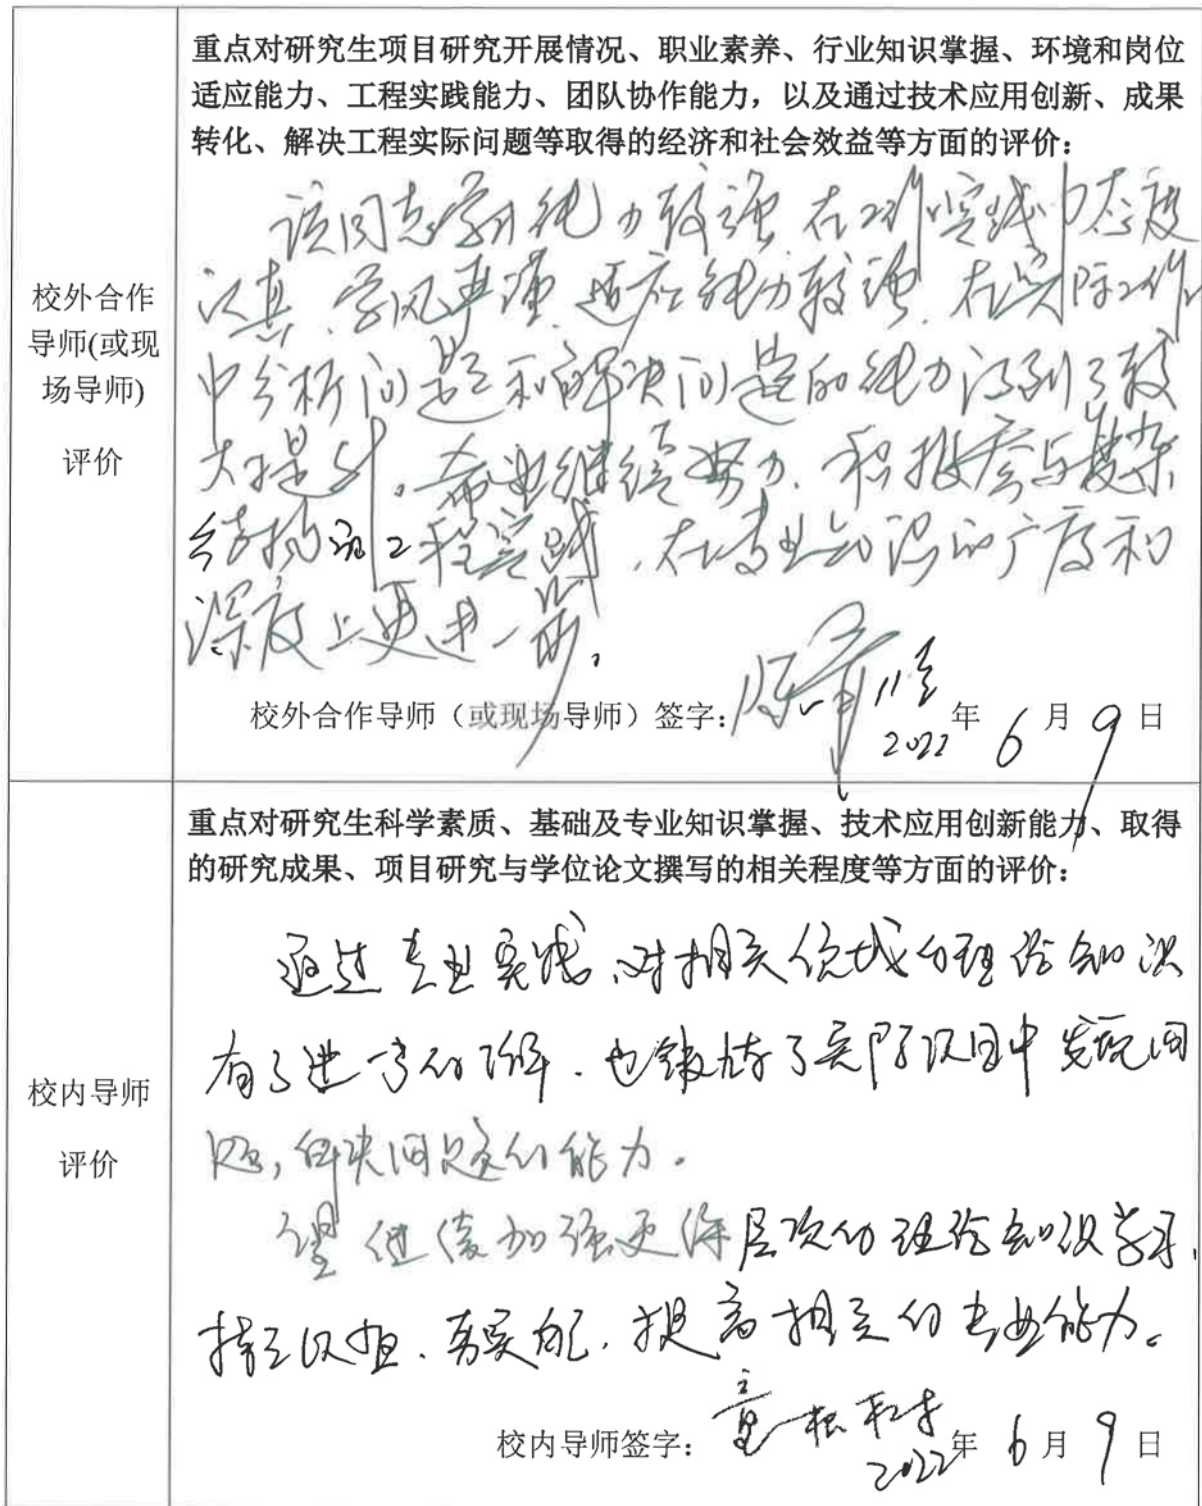 校外合作
导师(或现
场导师)
评价
重点对研究生项目研究开展情况、职业素养、行业知识掌握、环境和岗位
适应能力、工程实践能力、团队协作能力，以及通过技术应用创新、成果
转化、解决工程实际问题等取得的经济和社会效益等方面的评价：
该同志学习能力较强，在工作实践中态度
认真、学风严谨、适应能力较强，在实际工作
中分析问题和解决问题的能力得到了较
大提升。希望继续努力，积极参与复杂
结构的工程实践，在专业知识的广度和
深度上更进一步。
校外合作导师（或现场导师）签字：
2022年 6 月 9 日
校内导师
评价
重点对研究生科学素质、基础及专业知识掌握、技术应用创新能力、取得
的研究成果、项目研究与学位论文撰写的相关程度等方面的评价：
通过专业实践，对相关领域的理论知识
有了进一步的了解，也锻炼了实际项目中发现问
题，解决问题的能力。
望继续加强更深层次的理论知识学习，
提高相关的专业能力。
校内导师签字：童根树
2022年 6 月 9 日